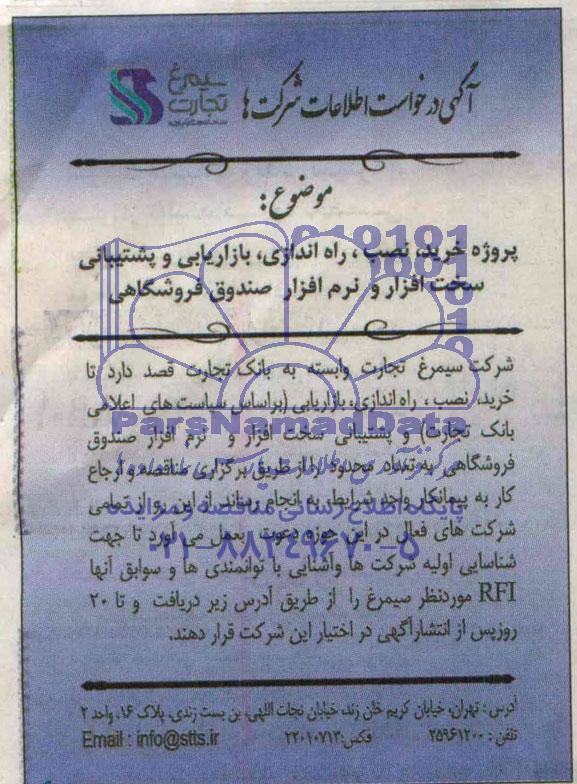 آگهی درخواست اطلاعات شرکت ها
سیمرغ
تجارت
موضوع:
پروژه خرید، نصب، راه اندازی، بازاریابی و پشتیبانی
سخت افزار و نرم افزار صندوق فروشگاهی
شرکت سیمرغ تجارت وابسته به بانک تجارت قصد دارد تا
خرید، نصب، راه اندازی، بازاریابی (براساس سیاست های اعلامی
بانک تجارت) و پشتیبانی سخت افزار و نرم افزار صندوق
فروشگاهی به تعداد محدود را از طریق برگزاری مناقصه و ارجاع
کار به پیمانکار واجد شرایط به انجام رساند. از این رو از تمامی
شرکت های فعال در این حوزه دعوت بعمل می آورد تا جهت
شناسایی اولیه شرکت ها وآشنایی با توانمندی ها و سوابق آنها
RFI موردنظر سیمرغ را از طریق آدرس زیر دریافت و تا ۲۰
روزپس از انتشارآگهی در اختیار این شرکت قرار دهند.
آدرس: تهران، خیابان کریم خان زند، خیابان نجات اللهی، بن بست زندی، پلاک ۱۶، واحد ۲
تلفن: ۲۵۹۶۱۲۰۰ فکس: ۲۲۰۱۰۷۱۳ Email : info@stts.ir
ParsNamadData
پایگاه اطلاع رسانی مناقصه و مزایده
۰۲۱-۸۸۳۴۹۶۷۰-۵